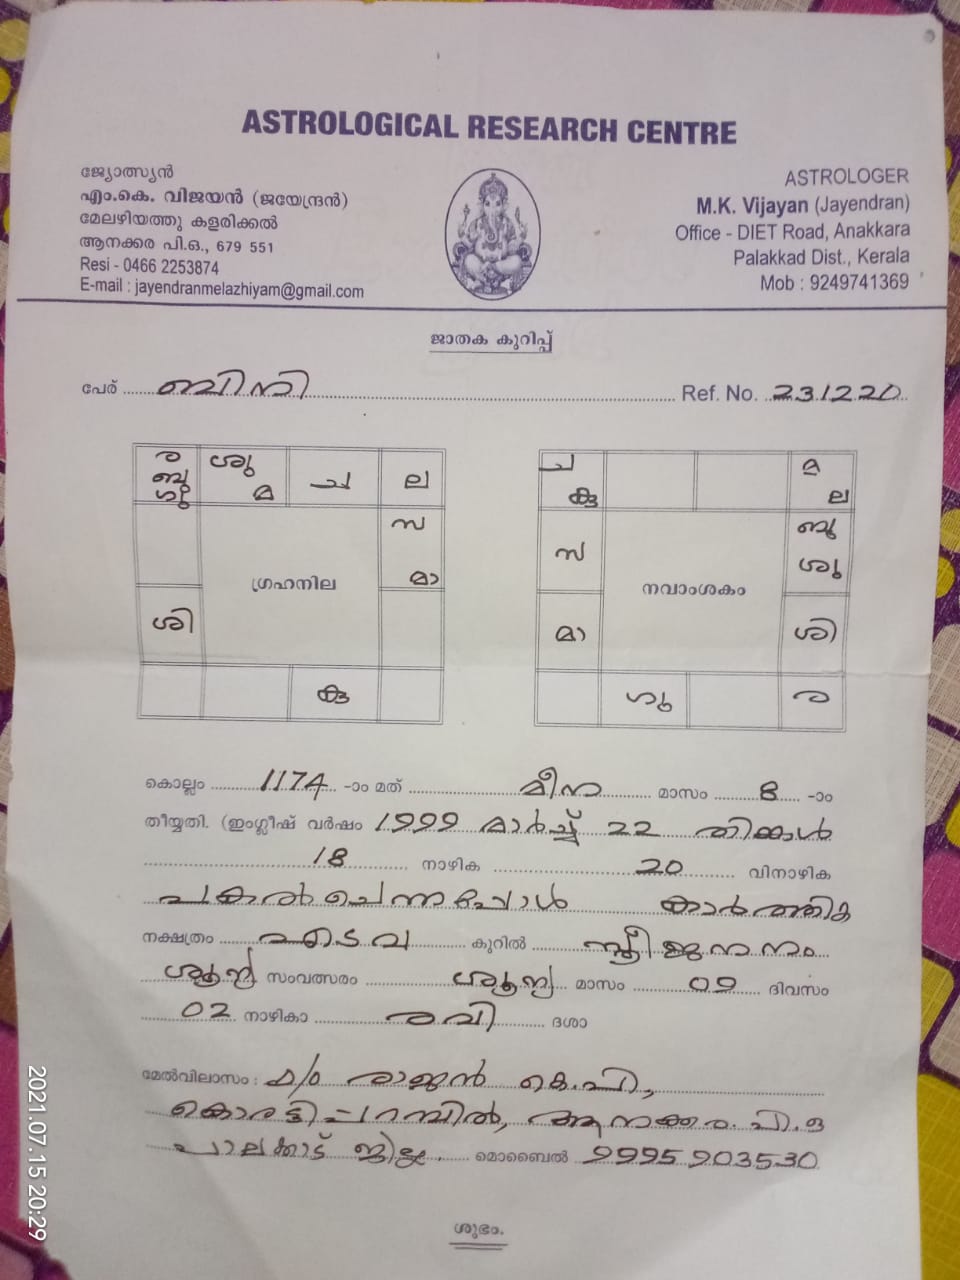 ASTROLOGICAL RESEARCH CENTRE
ജ്യോത്സ്യൻ
എം.കെ. വിജയൻ (ജയേന്ദ്രൻ)
മേലഴിയത്തു കളരിക്കൽ
ആനക്കര പി.ഒ., 679 551
Resi - 0466 2253874
E-mail : jayendranmelazhiyam@gmail.com
ASTROLOGER
M.K. Vijayan (Jayendran)
Office - DIET Road, Anakkara
Palakkad Dist., Kerala
Mob : 9249741369
ജാതക കുറിപ്പ്
പേര് ബിനി Ref. No. 231220
ര ശു ച ല
ബു
ഗു മ
സ
മാ
ഗ്രഹനില
ശി
കു
ച മ
കു ല
സ ബു
ശു
നവാംശകം
മാ ശി
ഗു ര
കൊല്ലം 1174 -ാം മത് മീന മാസം 8 -ാം
തീയ്യതി. (ഇംഗ്ലീഷ് വർഷം 1999 മാർച്ച് 22 തിങ്കൾ
18 നാഴിക 20 വിനാഴിക
പകൽചെന്നപ്പോൾ കാർത്തിക
നക്ഷത്രം എടവ കൂറിൽ സ്ത്രീജനനം
ശൂന്യ സംവത്സരം ശൂന്യ മാസം 09 ദിവസം
02 നാഴികാ രവി ദശാ
മേൽവിലാസം : D/o രാജൻ കെ.പി,
കൊരട്ടിപറമ്പിൽ, ആനക്കര.പി.ഒ
പാലക്കാട് ജില്ല മൊബൈൽ 9995903530
ശുഭം.
2021.07.15 20:29